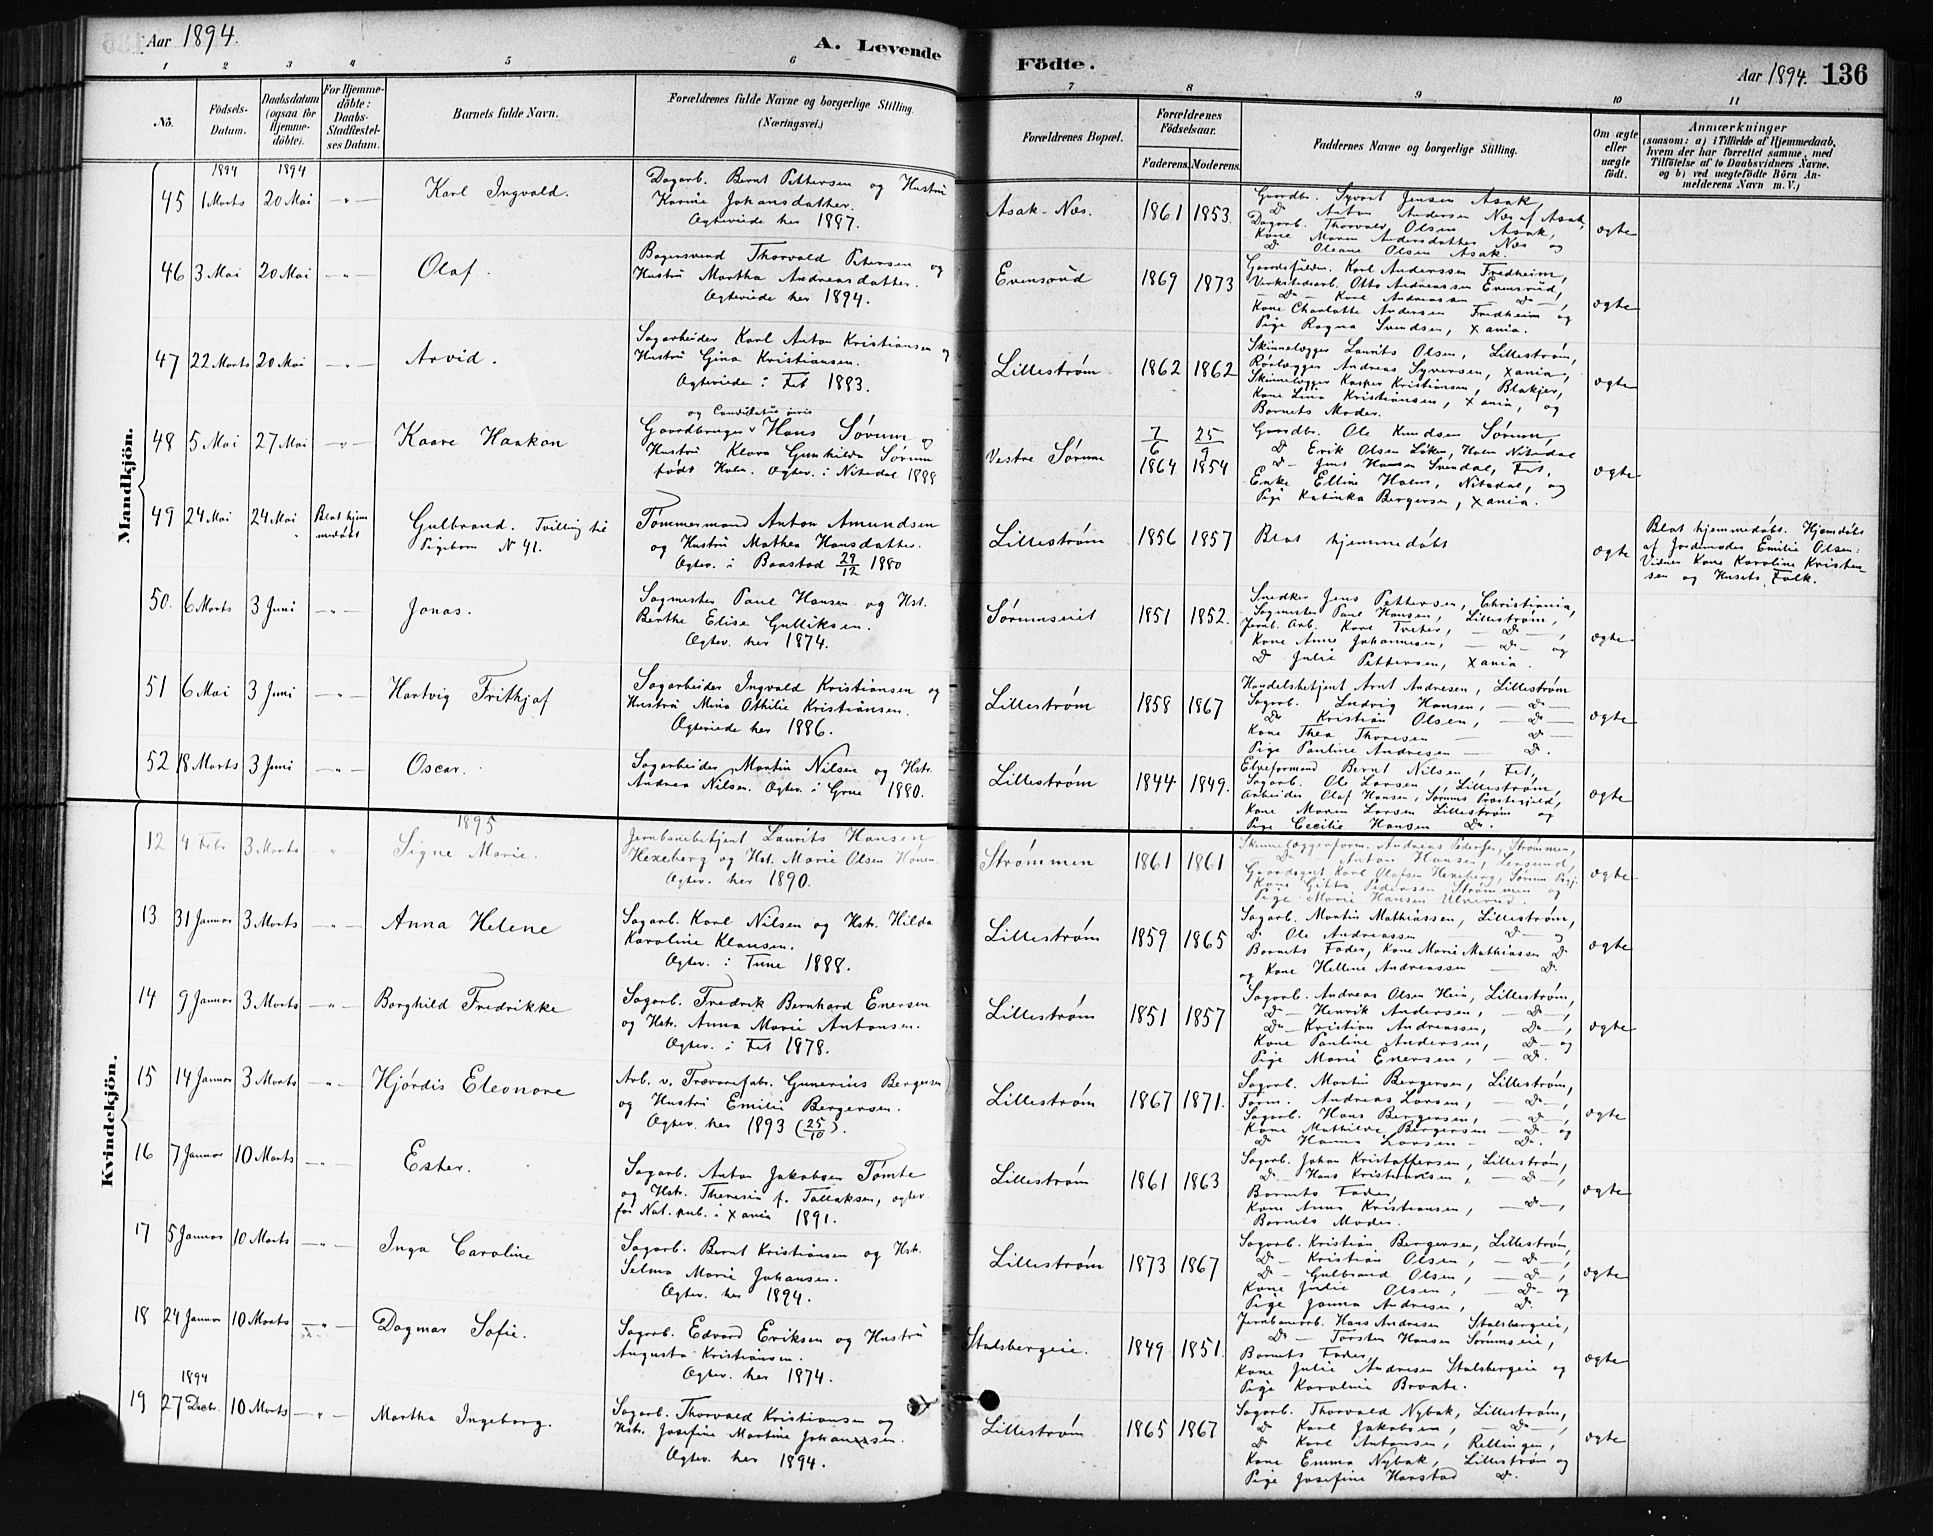 Aar 1894.
A. Levende
Födte.
Aar 1894. 136
1 2 3 4 5 6 7 8 9 10 11
No.
Födsels-Datum.
Daabsdatum (ogsaa for Hjemme-döbte).
For Hjemme-döbte: Daabs-Stadfæstel-ses Datum.
Barnets fulde Navn.
Forældrenes fulde Navne og borgerlige Stilling. (Næringsvei.)
Forældrenes Bopæl.
Forældrenes Födselsaar.
Faderens. Moderens.
Faddernes Navne og borgerlige Stilling.
Om ægte eller uægte födt.
Anmærkninger
(saasom: a) i Tilfælde af Hjemmedaab, hvem der har forrettet samme, med Tilföielse af to Daabsvidners Navne. og b) ved uægtefödte Börn An-melderens Navn m. V.)
Mandkjön.
1894 1894
45 1 Marts 20 Mai — " — Karl Ingvald.
Dagarb. Bernt Pettersen og Hustru
Karine Johansdatter.
Ægteviede her 1887.
Asak-Næs. 1861 1853.
Gaardbr. Syvert Jensen Asak,
D. Anton Andersen Næs af Asak,
Dagarb. Thorvald Olsen Asak,
Kone Maren Andersdatter Næs og
D. Oleane Olsen Asak.
ægte
46 3 Mai 20 Mai — " — Olaf.
Bagersvend Thorvald Petersen og
Hustru Martha Andreasdatter.
Ægteviede her 1894.
Evensrud 1869 1873
Karl Anderssen Fredheim,
Verkstedsarb. Otto Andreassen Evensrud,
— D — Kone Andreassen — D —,
Kone Charlotte Andersen Fredheim og
Pige Ragna Svendsen, Xania.
ægte
47 22 Marts 20 Mai — " — Arvid.
Sagarbeider Karl Anton Kristiansen og
Hustru Gina Kristiansen.
Ægteviede i Fet 1883.
Lillestrøm 1862 1862
Skinnelægger Laurits Olsen, Lillestrøm,
Rørlægger Andreas Syversen, Xania,
Skinnelægger Kasper Kristiansen, Blakjer,
Kone Lina Kristiansen, Xania, og
Barnets Moder.
ægte
48 5 Mai 27 Mai — " — Kaare Haakon
og Candidatus juris
Gaardbruger Hans Sørum og
Hustru Klara Gunhilda Sørum
født Holm. Ægtev. i Nitedal 1888
Vestre Sørum 7/6 1864 25/9 1854
Gaardbr. Ole Knudsen Sørum,
D Erik Olsen Løken, Holm Nitedal
D — Jens Hansen Svendal, Fet,
Enke Elline Holm, Nitedal, og
Pige Katinka Bergersen, Xania.
ægte
49 24 Mai 24 Mai Blot hjem medøbt Gulbrand. Tvilling til
Pigebarn N 41.
Tømmermand Anton Amundsen
og Hustru Mathea Hansdatter.
Ægtev. i Baastad 29/12 1880
Lillestrøm 1856 1857 Blot hjemmedøbt ægte
Blot hjemmedøbt. Hjemdøbt
af Jordmoder Emilie Olsen:
Vidner Kone Karoline Kristen-
sen og Husets Folk.
50. 6 Marts 3 Juni — " — Jonas.
Sagmester Paul Hansen og Hst.
Berthe Elise Gulliksen.
Ægtev. her 1874.
Sørumseiet 1851 1852.
Snedker Jens Pettersen, Christiania,
Sagmester Paul Hansen, Lillestrøm,
Jernb. Arb. Karl Treter, — D —,
Kone Anna Johannesen, — D — og
D Julie Pettersen, Xania.
ægte
51 6 Mai 3 Juni — " — Hartvig Frithjof
Sagarbeider Ingvald Kristiansen og
Hustru Mina Othilie Kristiansen.
Ægteviede her 1886.
Lillestrøm 1858 1867
Handelsbetjent Arnt Andresen, Lillestrøm
Sagarb. Ludvig Hansen, — D —
D Kristian Olsen, — D —
Kone Thea Thoresen — D —
Pige Pauline Andresen — D.
ægte
52 18 Marts 3 Juni — " — Oscar.
Sagarbeider Martin Nilsen og Hst.
Andrea Nilsen. Ægtev. i Grue 1880.
Lillestrøm 1844 1849.
Elveformand Bernt Nilsen, Fet,
Sagarb. Ole Larsen, Lillestrøm,
Arbeider Olaf Hansen, Sørums Præstegjeld,
Kone Maren Larsen Lillestrøm og
Pige Cecilie Hansen D.
ægte
Kvindekjön.
1895
12 4 Febr 3 Marts " Signe Marie.
Jernbanebetjent Laurits Hansen
Hexeberg og Hst. Marie Olsen
Ægtev. her 1890.
Strømmen 1861 1861
Skinnelæggerform. Andreas Pedersen, Strømmen,
D Anton Hansen, Lersund,
Gaardsgut Karl Olafsen Hexeberg, Sørum Pgj.
Kone Gitta Pedersen Strømmen og
Pige Marie Hansen Ulverud.
ægte
13 31 Januar 3 Marts — " — Anna Helene
Sagarb. Karl Nilsen og Hst. Hilda
Karoline Klausen.
Ægtev. i Tune 1888.
Lillestrøm 1859 1865
Sagarb. Martin Mathiassen, Lillestrøm,
D Ole Andreassen — D — og
Barnets Fader, Kone Marie Mathiassen D
og Kone Hellene Andreassen — D.
ægte
14 9 Januar 3 Marts — " — Borghild Fredrikke
Sagarb. Fredrik Bernhard Enersen
og Hst. Anna Marie Antonsen.
Ægtev. i Fet 1878.
Lillestrøm 1851 1857
Sagarb. Andreas Olsen Heia, Lillestrøm,
D — Henrik Andersen, — D —,
D — Kristian Andreassen, D —,
Kone Pauline Andersen, — D — og
Pige Marie Enersen, — D.
ægte
15 14 Januar 3 Marts — " — Hjørdis Eleonore
Arb. v. Trævarefabr. Gunerius Bergersen
og Hustru Emilie Bergersen.
Ægtev. her 1893 (25/10).
Lillestrøm 1867 1871.
Sagarb. Martin Bergersen, Lillestrøm,
Tørm. Andreas Larsen, — D —,
Sagarb. Hans Bergersen, — D —,
Kone Mathilde Bergersen — D — og
D Hanna Larsen — D.
ægte
16 7 Januar 10 Marts — " — Ester.
Sagarb. Anton Jakobsen Tømte
og Hst. Theresia f. Tollaksen, ægtev.
for Not. pub. i Xania 1891.
Lillestrøm 1861 1863
Sagarb. Johan Kristoffersen, Lillestrøm,
D — Hans Kristiansen, — D —,
Barnets Fader,
Kone Anna Kristiansen, — D —,
Barnets Moder.
ægte
17 5 Januar 10 Marts — " — Inga Caroline
Sagarb. Bernt Kristiansen og Hst.
Selma Marie Johansen.
Ægtev. her 1894.
Lillestrøm 1873 1867
Sagarb. Kristian Bergersen, Lillestrøm,
D — Kristian Olsen, — D —,
D — Gulbrand Olsen, — D —,
Kone Julie Olsen, — D — og
Pige Janna Andresen, D.
ægte
18 24 Januar 10 Marts — " — Dagmar Sofie.
Sagarb. Edvard Eriksen og Hustru
Augusta Kristiansen.
Ægtev. her 1874.
Stalsbergeie. 1849 1851.
Jernbanearb. Hans Andresen Stalsbergeie,
D — Torsten Hansen Sørumseie,
Barnets Fader,
Kone Julie Andresen Stalsbergeie og
Pige Karoline Braate.
ægte
1894
19 27 Decbr. 10 Marts — " — Martha Ingeborg.
Sagarb. Thorvald Kristiansen og
Hst. Josefine Martine Johannesen.
Ægtev. her 1894.
Lillestrøm 1865 1867
Sagarb. Thorvald Nybak, Lillestrøm,
D Karl Jakobsen, — D —,
D Karl Antonsen, Rellingen,
Kone Emma Nybak, Lillestrøm og
Pige Josefine Harstad D.
ægte